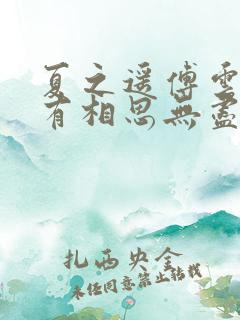 夏之遥傅雲
有相思無盡
扎西央金
未经同意禁止转载